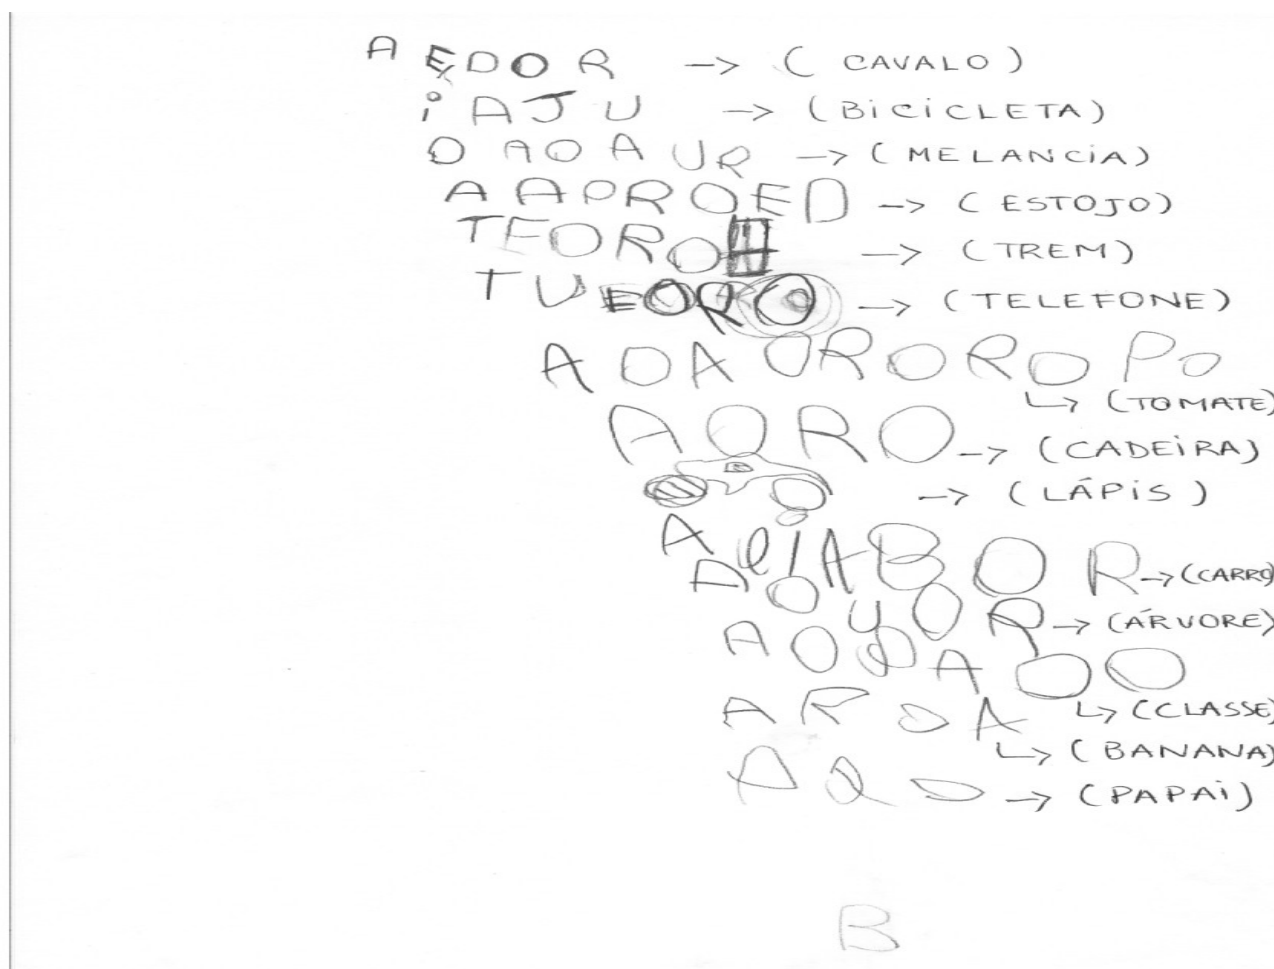 AEDOR -> (CAVALO)
iAJU -> (BiCiCLETA)
OAOAUR -> (MELANCiA)
AAPROED -> (ESTOJO)
TFORO -> (TREM)
TUEORO -> (TELEFONE)
AOAOROROPO
↳ (TOMATE)
AORO -> (CADEiRA)
-> (LÁPiS)
-> (CARRO)
AOUOR -> (ÁRVORE)
AOPAOO
↳ (CLASSE)
AROA
↳ (BANANA)
-> (PAPAi)
B